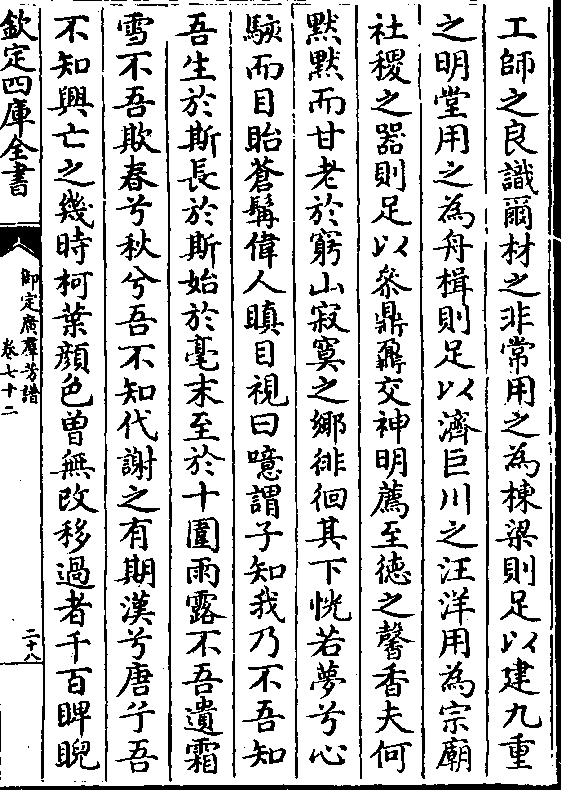 工師之良識爾材之非常用之為棟梁則足以建九重
之明堂用之為舟楫則足以濟巨川之汪洋用為宗廟
社稷之器則足以叅鼎鼐交神明薦至徳之馨香夫何
黙黙而甘老於窮山寂寞之鄉徘徊其下恍若夢兮心
駭而目眙蒼髯偉人瞋目視曰噫謂子知我乃不吾知
吾生於斯長於斯始於毫末至於十圍雨露不吾遺霜
雪不吾欺春兮秋兮吾不知代謝之有期漢兮唐兮吾
不知興亡之幾時柯葉顔色曾無改移過者千百睥睨
欽定四庫全書
御定廣羣芳譜
卷七十二
二十八